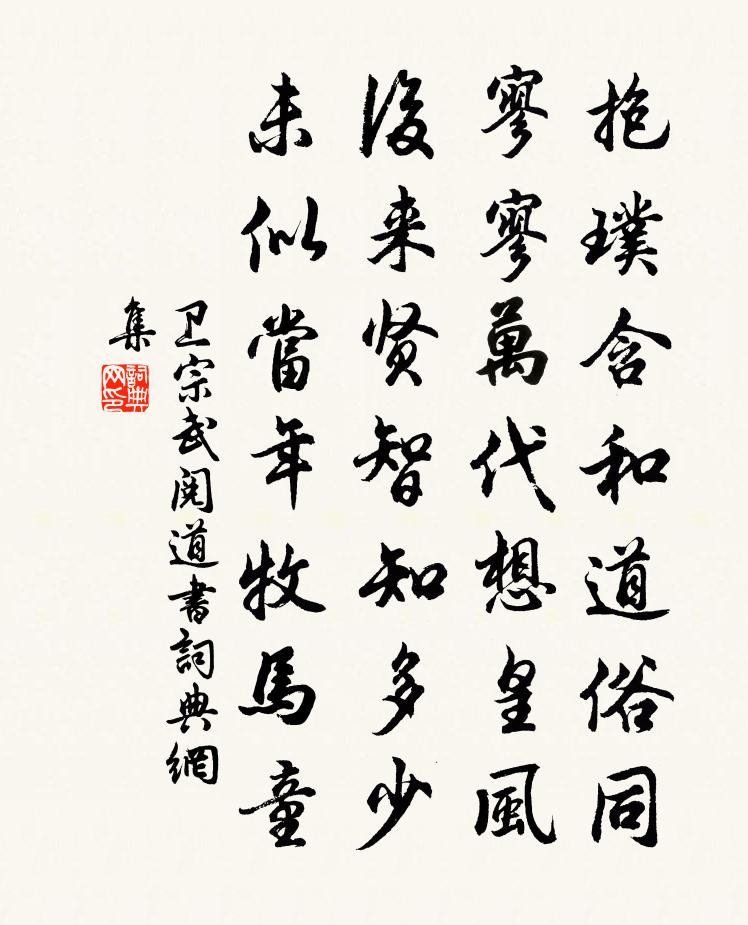 抱璞含和道俗同
寥寥萬代想皇風
後来贤智知多少
未似當年牧馬童
卫宗武阅道書詞典網
集
詞典
网印